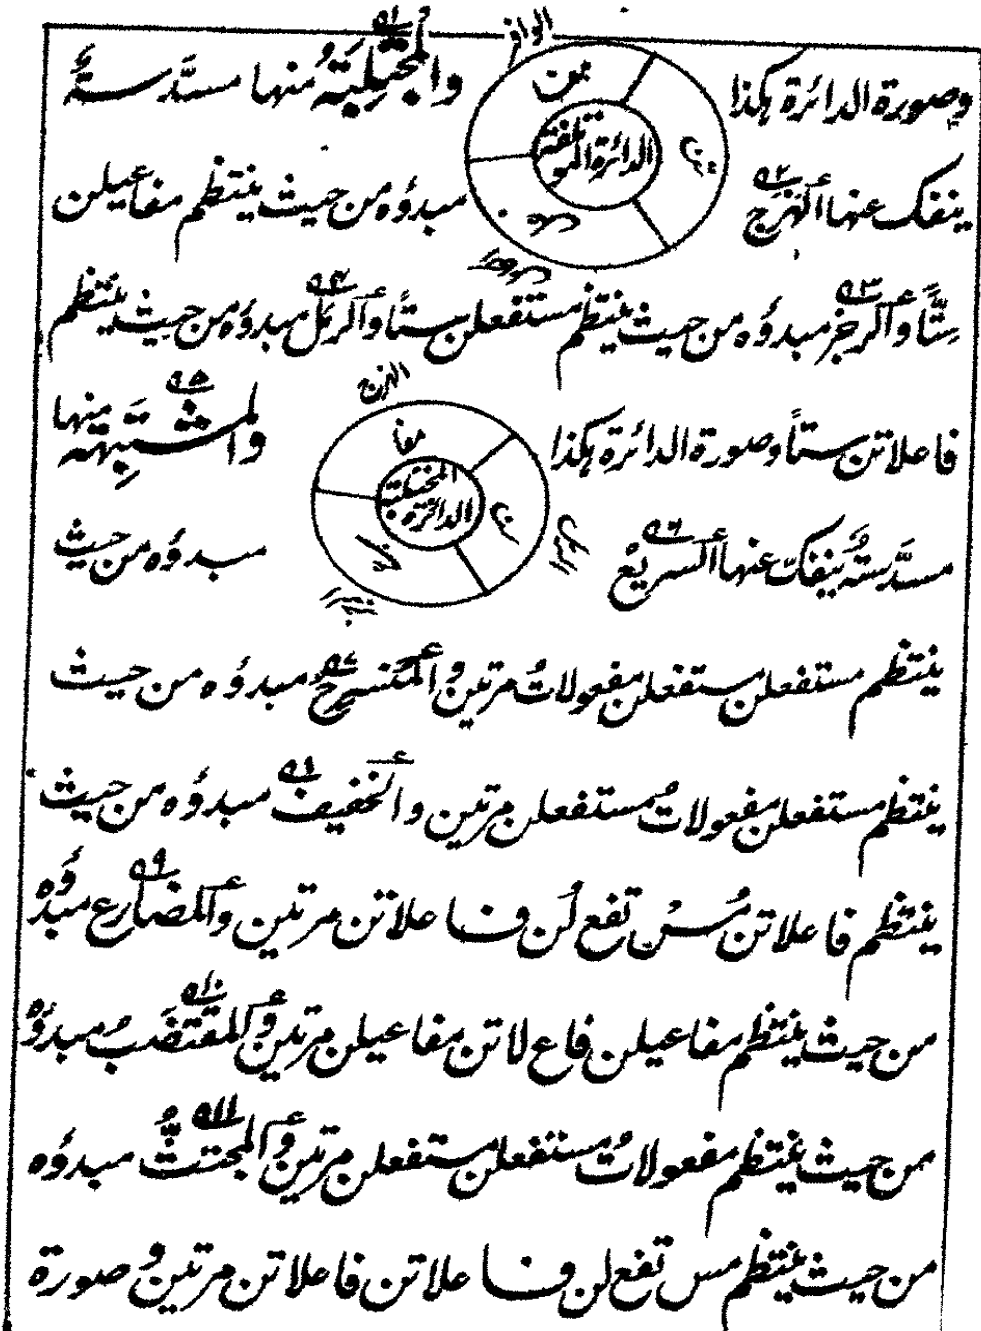 وصورة الدائرة هكذا والمجتلبة منها مسدسة
ينفك عنها الهزج مبدؤه من حيث ينتظم مفاعيلن
ستًّا والرجز مبدؤه من حيث ينتظم مستفعلن ستًّا والرمل مبدؤه من حيث ينتظم
فاعلاتن ستًّا وصورة الدائرة هكذا والمشتبهة منها
مسدَّسةٌ ينفكّ عنها السريعُ مبدؤه من حيث
ينتظم مستفعلن مستفعلن مفعولاتُ مرتين والمنسرح مبدؤه من حيث
ينتظم مستفعلن مفعولاتُ مستفعلن مرتين والخفيف مبدؤه من حيث
ينتظم فاعلاتن مُسْ تفع لُن فاعلاتن مرتين والمضارع مبدؤه
من حيث ينتظم مفاعيلن فاع لاتن مفاعيلن مرتين والمقتضب مبدؤه
من حيث ينتظم مفعولاتُ مستفعلن مستفعلن مرتين والمجتثُّ مبدؤه
من حيث ينتظم مس تفع لن فاعلاتن فاعلاتن مرتين وصورة
الوافر
الدائرة المؤتلفة
الهزج
مفا
الدائرة المجتلبة
الرمل
الرجز